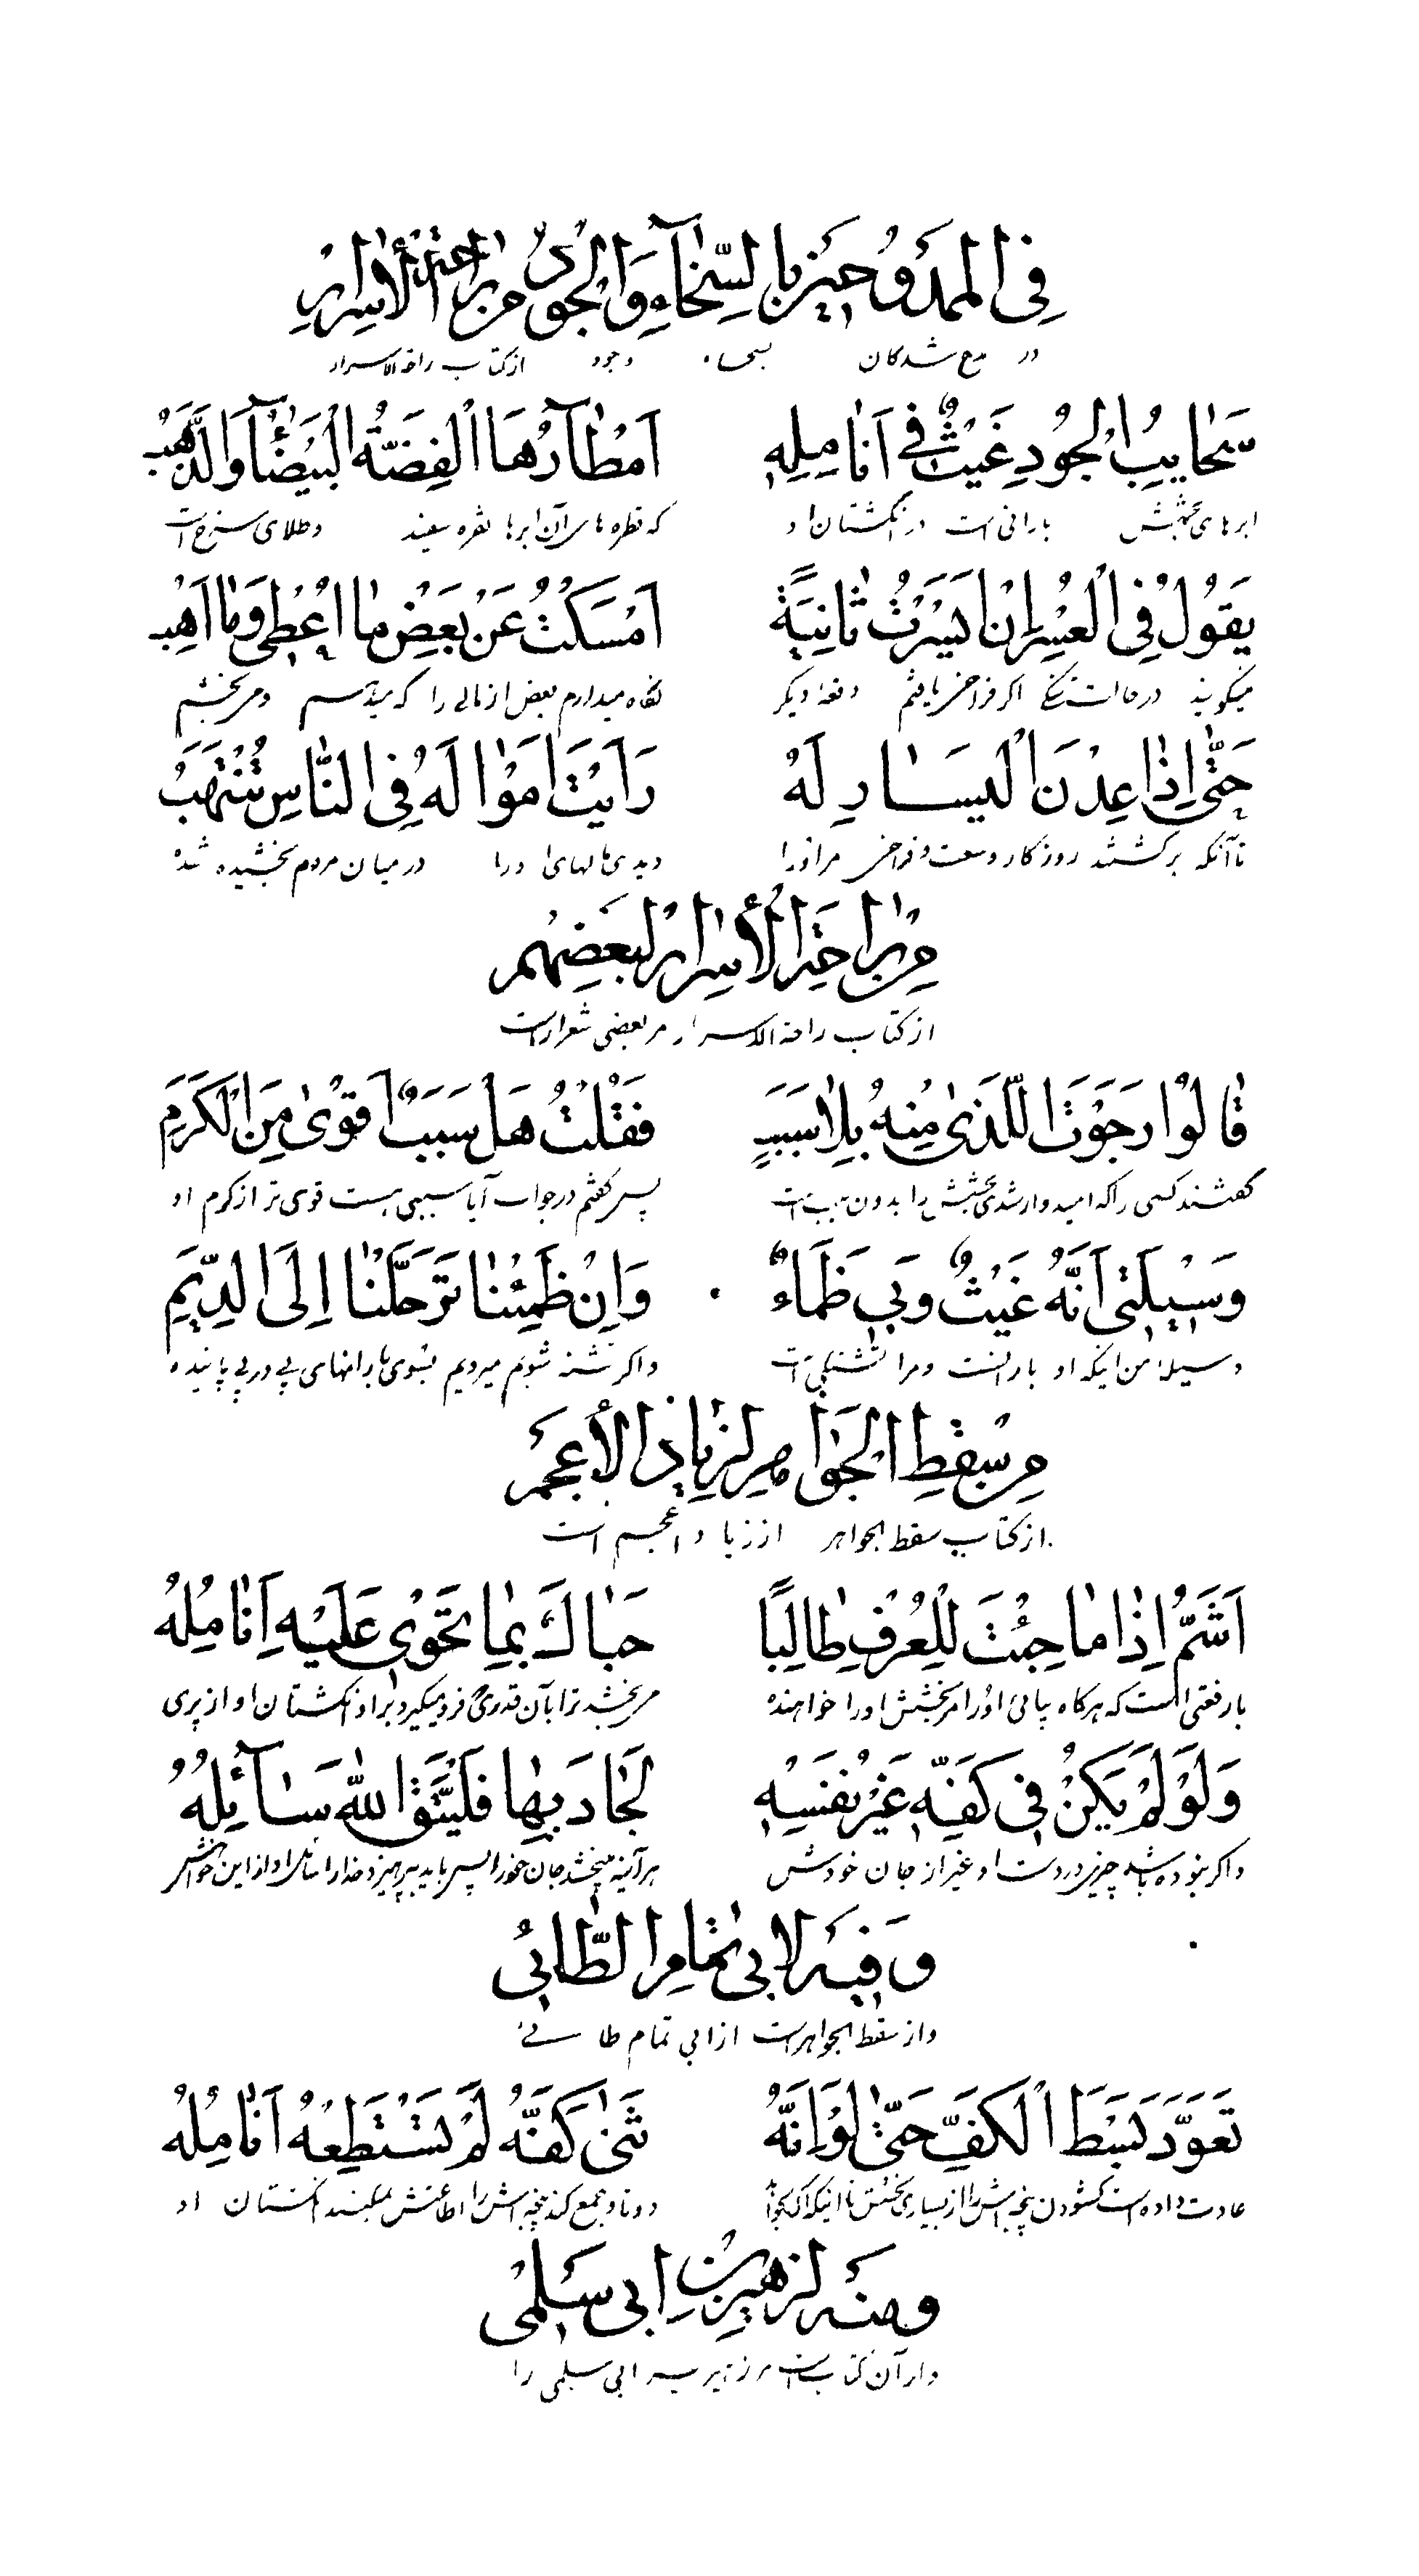 فِی الْمَمْدُوحِینَ بِالسَّخَآءِ وَالْجُودِ مِنْ رَاحَةِ الْأَسْرَارِ
در مدح شدکان بسخاء وجود از کتاب راحة الاسرار
سَحَابِیبُ الْجُودِ غَیْثٌ فِی اَنَامِلِهِ اَمْطَارُهَا الْفِضَّةُ الْبَیْضَآءُ وَالذَّهَبُ
ابرهای بخشش بارانی است در انگشتان او که قطره های آن ابرها نقره سفید و طلای سرخ است
یَقُولُ فِی الْعُسْرِ اِنْ اَیْسَرْتُ ثَانِیَةً اَمْسَکْتُ عَنْ بَعْضِ مَا اُعْطِی وَمَا اَهِبُ
میکوید در حالت تنگی اکر فراخی یافتم دفعهٔ دیکر نکاه میدارم بعض از مالی را که میدهم و میبخشم
حَتّٰی اِذَا عِدْنَ اَیْسَارٌ لَهُ رَاَیْتَ اَمْوَالَهُ فِی النَّاسِ تُنْتَهَبُ
تا آنکه برکشتند روزکار وسعت و فراخی مر او را دیدی مالهای او را در میان مردم بخشیده شده
مِنْ رَاحَةِ الْأَسْرَارِ لِبَعْضِهِمْ
از کتاب راحة الاسرار مر بعضی شعرا راست
قَالُوا رَجَوْتَ الَّذٰی مِنْهُ بِلَا سَبَبٍ فَقُلْتُ هَلْ سَبَبٌ اَقْوٰی مِنَ الْکَرَمِ
کفتند کسی را که امیدوار شدی بخشش را بدون سبب است پس کفتم در جواب آیا سببی هست قوی تر از کرم او
وَسِیلَتِی اَنَّهُ غَیْثٌ وَبِی ظَمَاءٌ وَاِنْ ظَمِئْنَا تَرَحَّلْنَا اِلَی الدِّیَمِ
وسیلهٔ من اینکه او بارانست و مرا تشنکی است و اکر تشنه شویم میرویم بسوی بارانهای پی در پی پاینده
مِنْ سَقَطِ الْجَوَاهِرِ لِزِیَادِ الْأَعْجَمِ
از کتاب سقط الجواهر از زیاد اعجم است
اَشَمُّ اِذَا مَا جِئْتَ لِلْعُرْفِ طَالِبًا حَبَاكَ بِمَا تَحْوِی عَلَیْهِ اَنَامِلُهُ
با رفعتی است که هرکاه بیائی او را مر بخشش او را خواهنده میبخشد ترا بآن قدری که فرو میکیرد بر او انکشتان او از پری
وَلَوْ لَمْ یَکُنْ فِی کَفِّهِ غَیْرُ نَفْسِهِ لَجَادَ بِهَا فَلْیَتَّقِ اللهَ سَآئِلُهُ
و اکر نبوده باشد چیزی در دست او غیر از جان خودش هر آینه میبخشد جان خود را پس باید بپرهیزد خدا را سائل او از این خواهش
وَفِیهِ لِاَبِی تَمَامِ الطَّائِی
و از سقط الجواهر است از ابی تمام طائی
تَعَوَّدَ بَسْطَ الْکَفِّ حَتّٰی لَوْ اَنَّهُ ثَنٰی کَفَّهُ لَمْ تَسْتَطِعْهُ اَنَامِلُهُ
عادت داده است کشودن پنجه اش را از بسیاری بخشش تا اینکه اکر بخواهد دوتا و جمع کند پنجه اش را اطاعتش نمیکنند انکشتان او
وَمِنْهُ لِزُهَیْرِ بْنِ اَبِی سُلْمٰی
و از آن کتاب است مر زهیر پسر ابی سلمی را